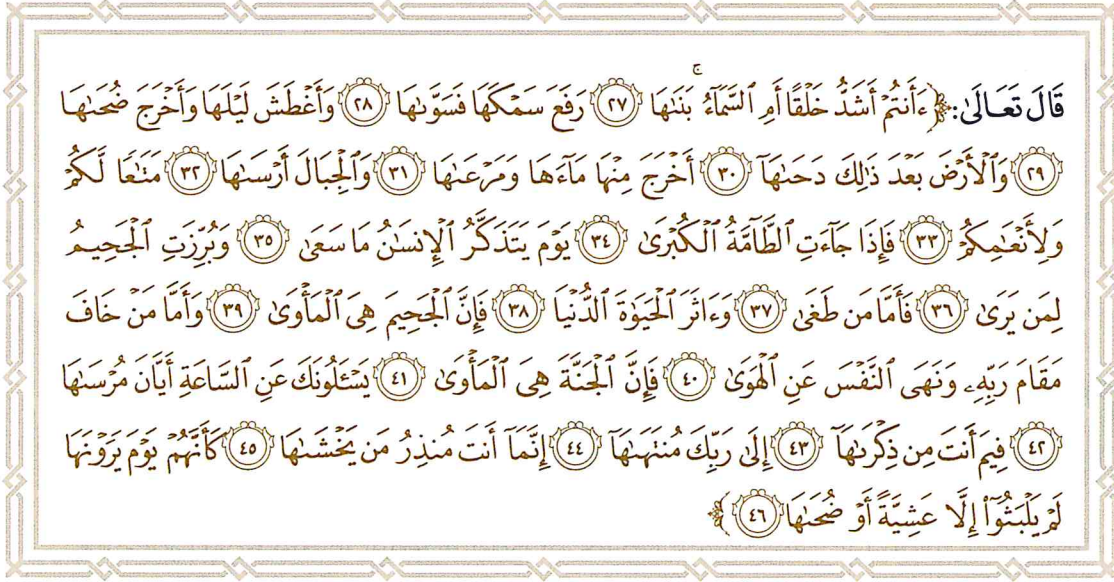 قَالَ تَعَالَىٰ: ﴿ءَأَنتُمْ أَشَدُّ خَلْقًا أَمِ ٱلسَّمَآءُ ۚ بَنَىٰهَا ٢٧ رَفَعَ سَمْكَهَا فَسَوَّىٰهَا ٢٨ وَأَغْطَشَ لَيْلَهَا وَأَخْرَجَ ضُحَىٰهَا
٢٩ وَٱلْأَرْضَ بَعْدَ ذَٰلِكَ دَحَىٰهَآ ٣٠ أَخْرَجَ مِنْهَا مَآءَهَا وَمَرْعَىٰهَا ٣١ وَٱلْجِبَالَ أَرْسَىٰهَا ٣٢ مَتَٰعًا لَّكُمْ
وَلِأَنْعَٰمِكُمْ ٣٣ فَإِذَا جَآءَتِ ٱلطَّآمَّةُ ٱلْكُبْرَىٰ ٣٤ يَوْمَ يَتَذَكَّرُ ٱلْإِنسَٰنُ مَا سَعَىٰ ٣٥ وَبُرِّزَتِ ٱلْجَحِيمُ
لِمَن يَرَىٰ ٣٦ فَأَمَّا مَن طَغَىٰ ٣٧ وَءَاثَرَ ٱلْحَيَوٰةَ ٱلدُّنْيَا ٣٨ فَإِنَّ ٱلْجَحِيمَ هِىَ ٱلْمَأْوَىٰ ٣٩ وَأَمَّا مَنْ خَافَ
مَقَامَ رَبِّهِۦ وَنَهَى ٱلنَّفْسَ عَنِ ٱلْهَوَىٰ ٤٠ فَإِنَّ ٱلْجَنَّةَ هِىَ ٱلْمَأْوَىٰ ٤١ يَسْـَٔلُونَكَ عَنِ ٱلسَّاعَةِ أَيَّانَ مُرْسَىٰهَا
٤٢ فِيمَ أَنتَ مِن ذِكْرَىٰهَآ ٤٣ إِلَىٰ رَبِّكَ مُنتَهَىٰهَآ ٤٤ إِنَّمَآ أَنتَ مُنذِرُ مَن يَخْشَىٰهَا ٤٥ كَأَنَّهُمْ يَوْمَ يَرَوْنَهَا
لَمْ يَلْبَثُوٓا۟ إِلَّا عَشِيَّةً أَوْ ضُحَىٰهَا ٤٦﴾